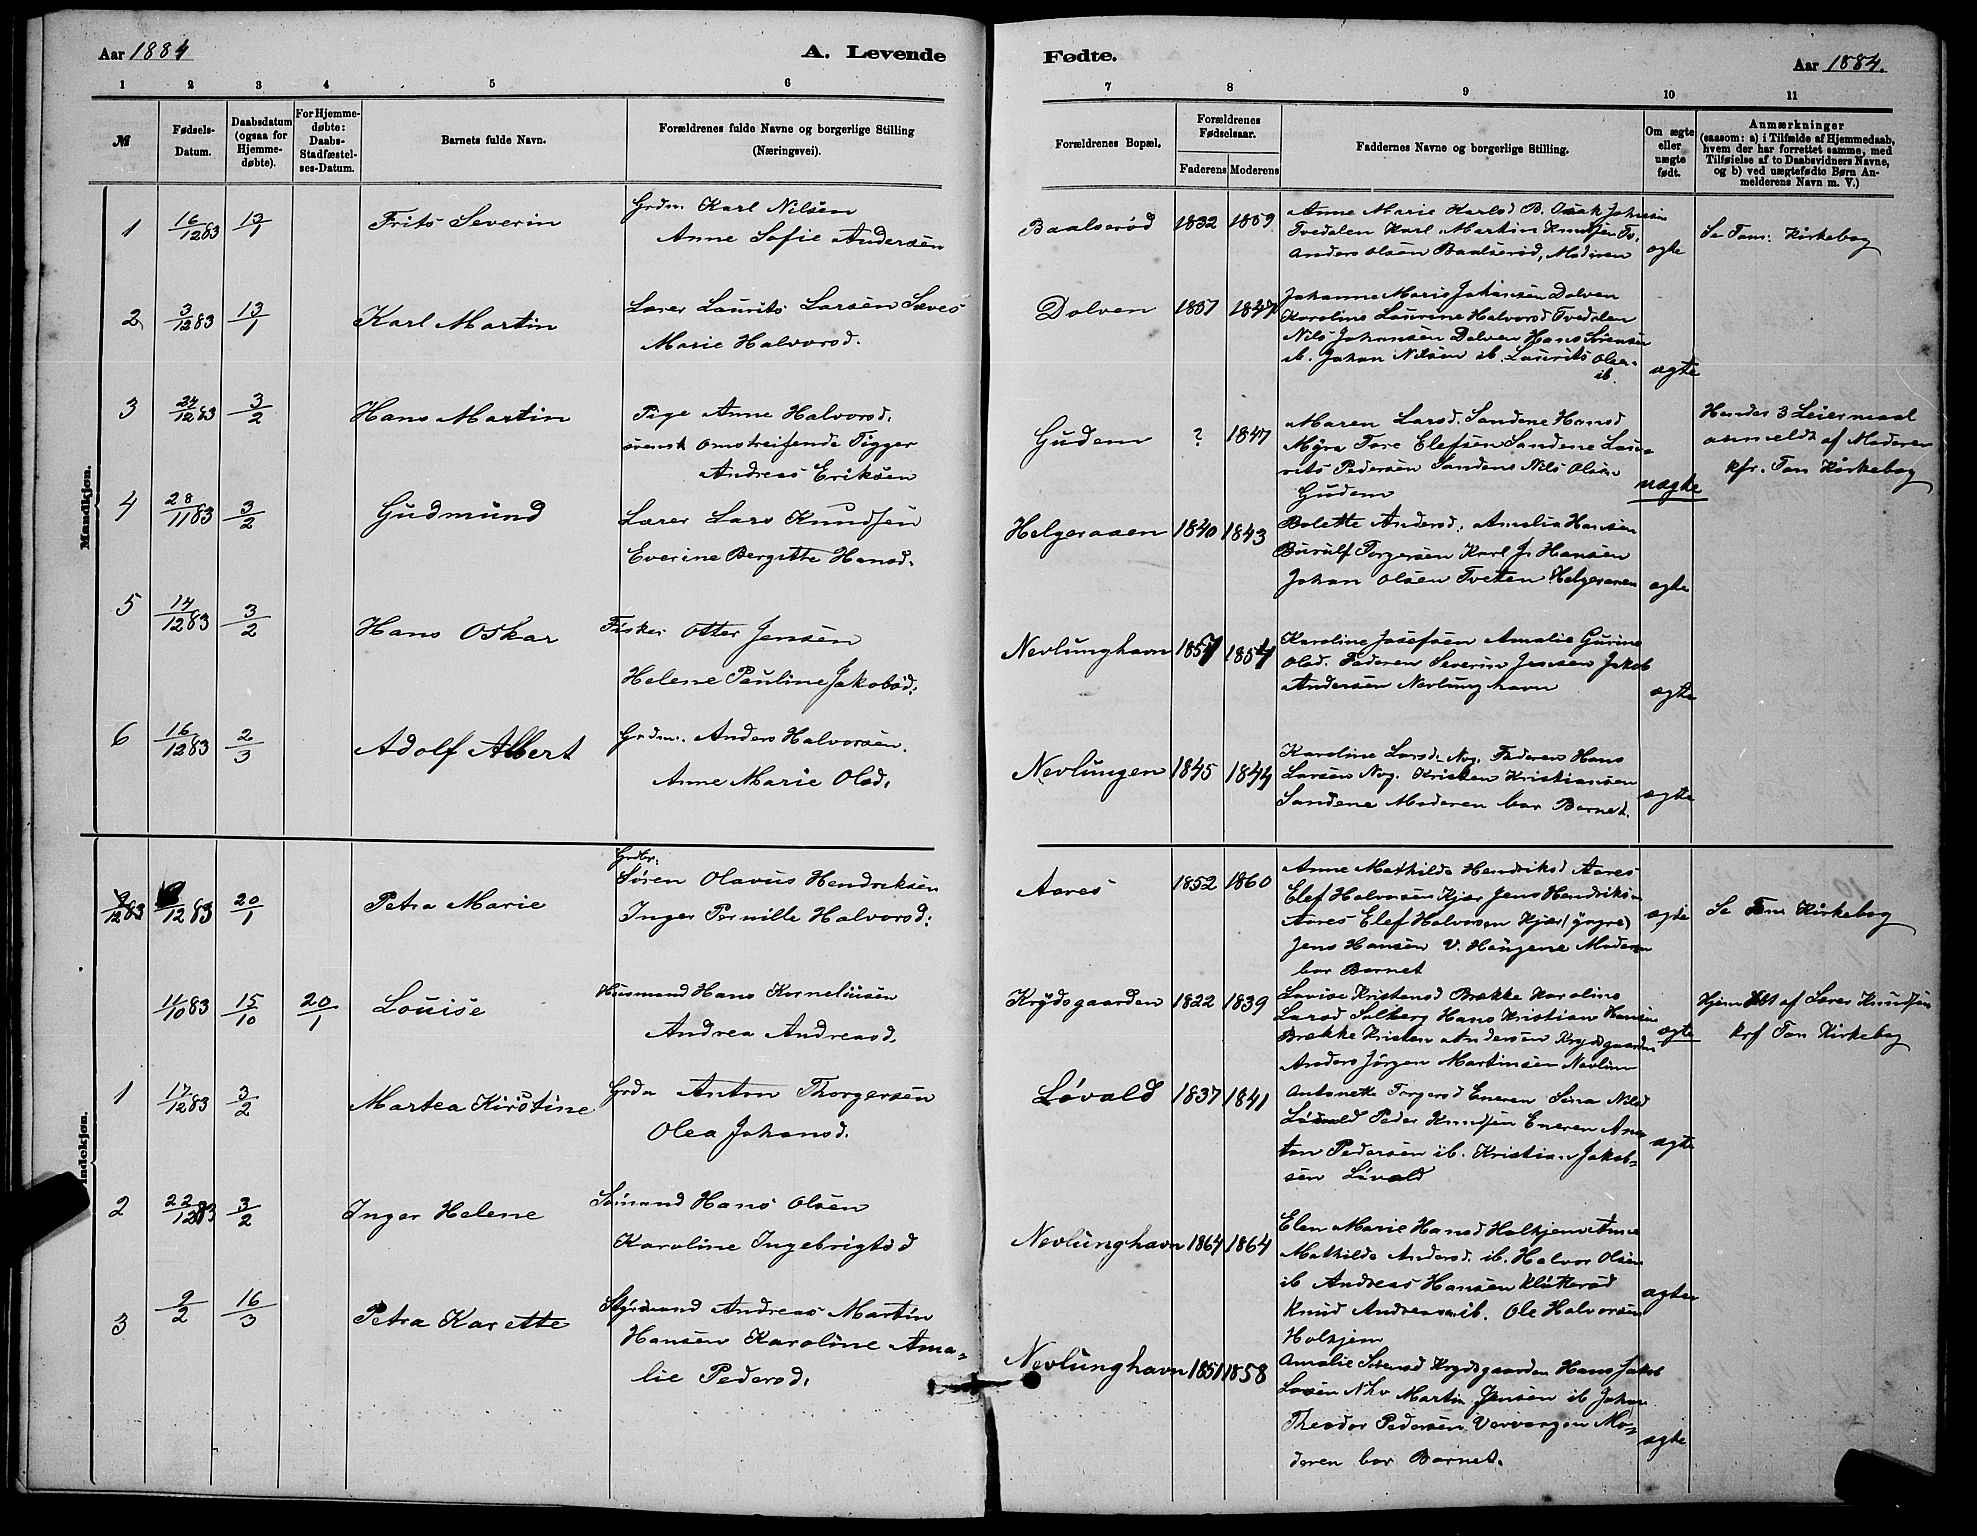 Aar 1884
A. Levende
Fødte.
Aar 1884.
1 2 3 4 5 6 7 8 9 10 11
№
Fødsels-Datum.
Daabsdatum (ogsaa for Hjemmedøbte).
For Hjemmedøbte: Daabs-Stadfæstelses-Datum.
Barnets fulde Navn.
Forældrenes fulde Navne og borgerlige Stilling
(Næringsvei).
Forældrenes Bopæl.
Forældrenes Fødselsaar.
Faderens Moderens
Faddernes Navne og borgerlige Stilling.
Om ægte eller uægte født.
Anmærkninger
(saasom: a) i Tilfælde af Hjemmedaab,
hvem der har forrettet samme, med
Tilføielse af to Daabsvidners Navne,
og b) ved uægtefødte Børn Anmelderens Navn m. V.)
Mandkjøn.
1 16/12 83 13/1 Frits Severin Grdm. Karl Nilsen
Anne Sofie Andersen
Baalserød 1832 1859
Anne Marie Karlsd B. Isak Johnsen
Tvedalen Karl Martin Knudsen Tv.
Anders Olsen Baalserød, Moderen
ægte
Se Tom: Kirkebog
2 3/12 83 13/1 Karl Martin Lærer Laurits Larsen
Marie Halvorsd.
Dolven 1857 1847
Johanne Marie Johansen Dolven
Karoline Laurine Halvorsd Tvedalen
Nils Johansen Dolven Hans Sørensen
ib. Johan Nilsen ib. Laurits Olsen
ib.
ægte
3 24/12 83 3/2 Hans Martin Pige Anne Halvorsd.
svensk omstreifende Tigger
Andreas Eriksen
Gudem ? 1847
Maren Larsd. Sandene Hansd
Myra Tore Elefsen Sandene Lau-
rits Pedersen Sandene Nils Olsen
Gudem
uægte
Hendes 3 Leiermaal
anmeldt af Moderen
kfr. Tom Kirkebog
4 28/11 83 3/2 Gudmund Lærer Lars Knudsen
Everine Bergitte Hansd.
Helgeraaen 1840 1843
Bolette Andersd. Amalia Hansen
Burulf Torgersen Karl J. Hansen
Johan Olsen Tveten Helgeraaen
ægte
5 14/12 83 3/2 Hans Oskar Fisker Otter Jensen
Helene Pauline Jakobsd.
Nevlunghavn 1857 1854
Karoline Josefsen Amalie Gurine
Olsd. Faderen Severin Jensen Jakob
Andersen Nevlunghavn
ægte
6 16/12 83 2/3 Adolf Albert Grdm. Anders Halvorsen.
Anne Marie Olsd.
Nevlungen 1845 1844
Karoline Larsd. Nvg. Faderen Hans
Larsen Nvg. Kristen Kristiansen
Sandene Moderen bar Barnet.
ægte
12 83 20/1 Petra Marie
Søren Olavus Hendriksen
Inger Pernille Halvorsd.
Aares 1852 1860
Anne Mathilde Hendriksd Aares
Elef Halvorsen Kjær Jens Hendriksen
Aares Elef Halvorsen Kjær (yngre)
Jens Hansen V. Haugene Moderen
bar Barnet
ægte
Se Tom Kirkebog
11/10 83 15/10 20/1 Louise Husmand Hans Korneliusen
Andrea Andreasd.
Krydsgaarden 1822 1839
Lovise Kristensd Brække Karoline
Larsd Solberg Hans Kristian Hansen
Brække Kristen Andersen Krydsgaarden
Anders Jørgen Martinsen Nevlun
ægte
Hjem dbt af Lærer Knudsen
kfr Tom Kirkebog
1 17/12 83 3/2 Martea Kirstine Grdm Anton Thorgersen
Olea Johansd.
Løvald 1837 1841
Antonette Torgersd Eneren Sina Nilsd
Løvald Peder Knudsen Eneren An-
ton Pedersen ib. Kristian Jakob-
sen Løvald
ægte
2 22/12 83 3/2 Inger Helene Sømand Hans Olsen
Karoline Ingebrigtsd
Nevlunghavn 1864 1864
Elen Marie Hansd Holkjem Anne
Mathilde Andersd. ib. Halvor Olsen
ib Andreas Hansen Klåkkerød
Knud Andreassen ib. Ole Halvorsen
Holkjem
ægte
3 9/2 16/3 Petra Karette Styrmand Andreas Martin
Hansen Karoline Ama-
lie Pedersd.
Nevlunghavn 1851 1858
Amalie Sørensd Krydsgaarden Hans Jakob
Larsen Nhv Martin Jensen ib Johan
Theodor Pedersen Varvangen Mo-
deren bar Barnet.
ægte